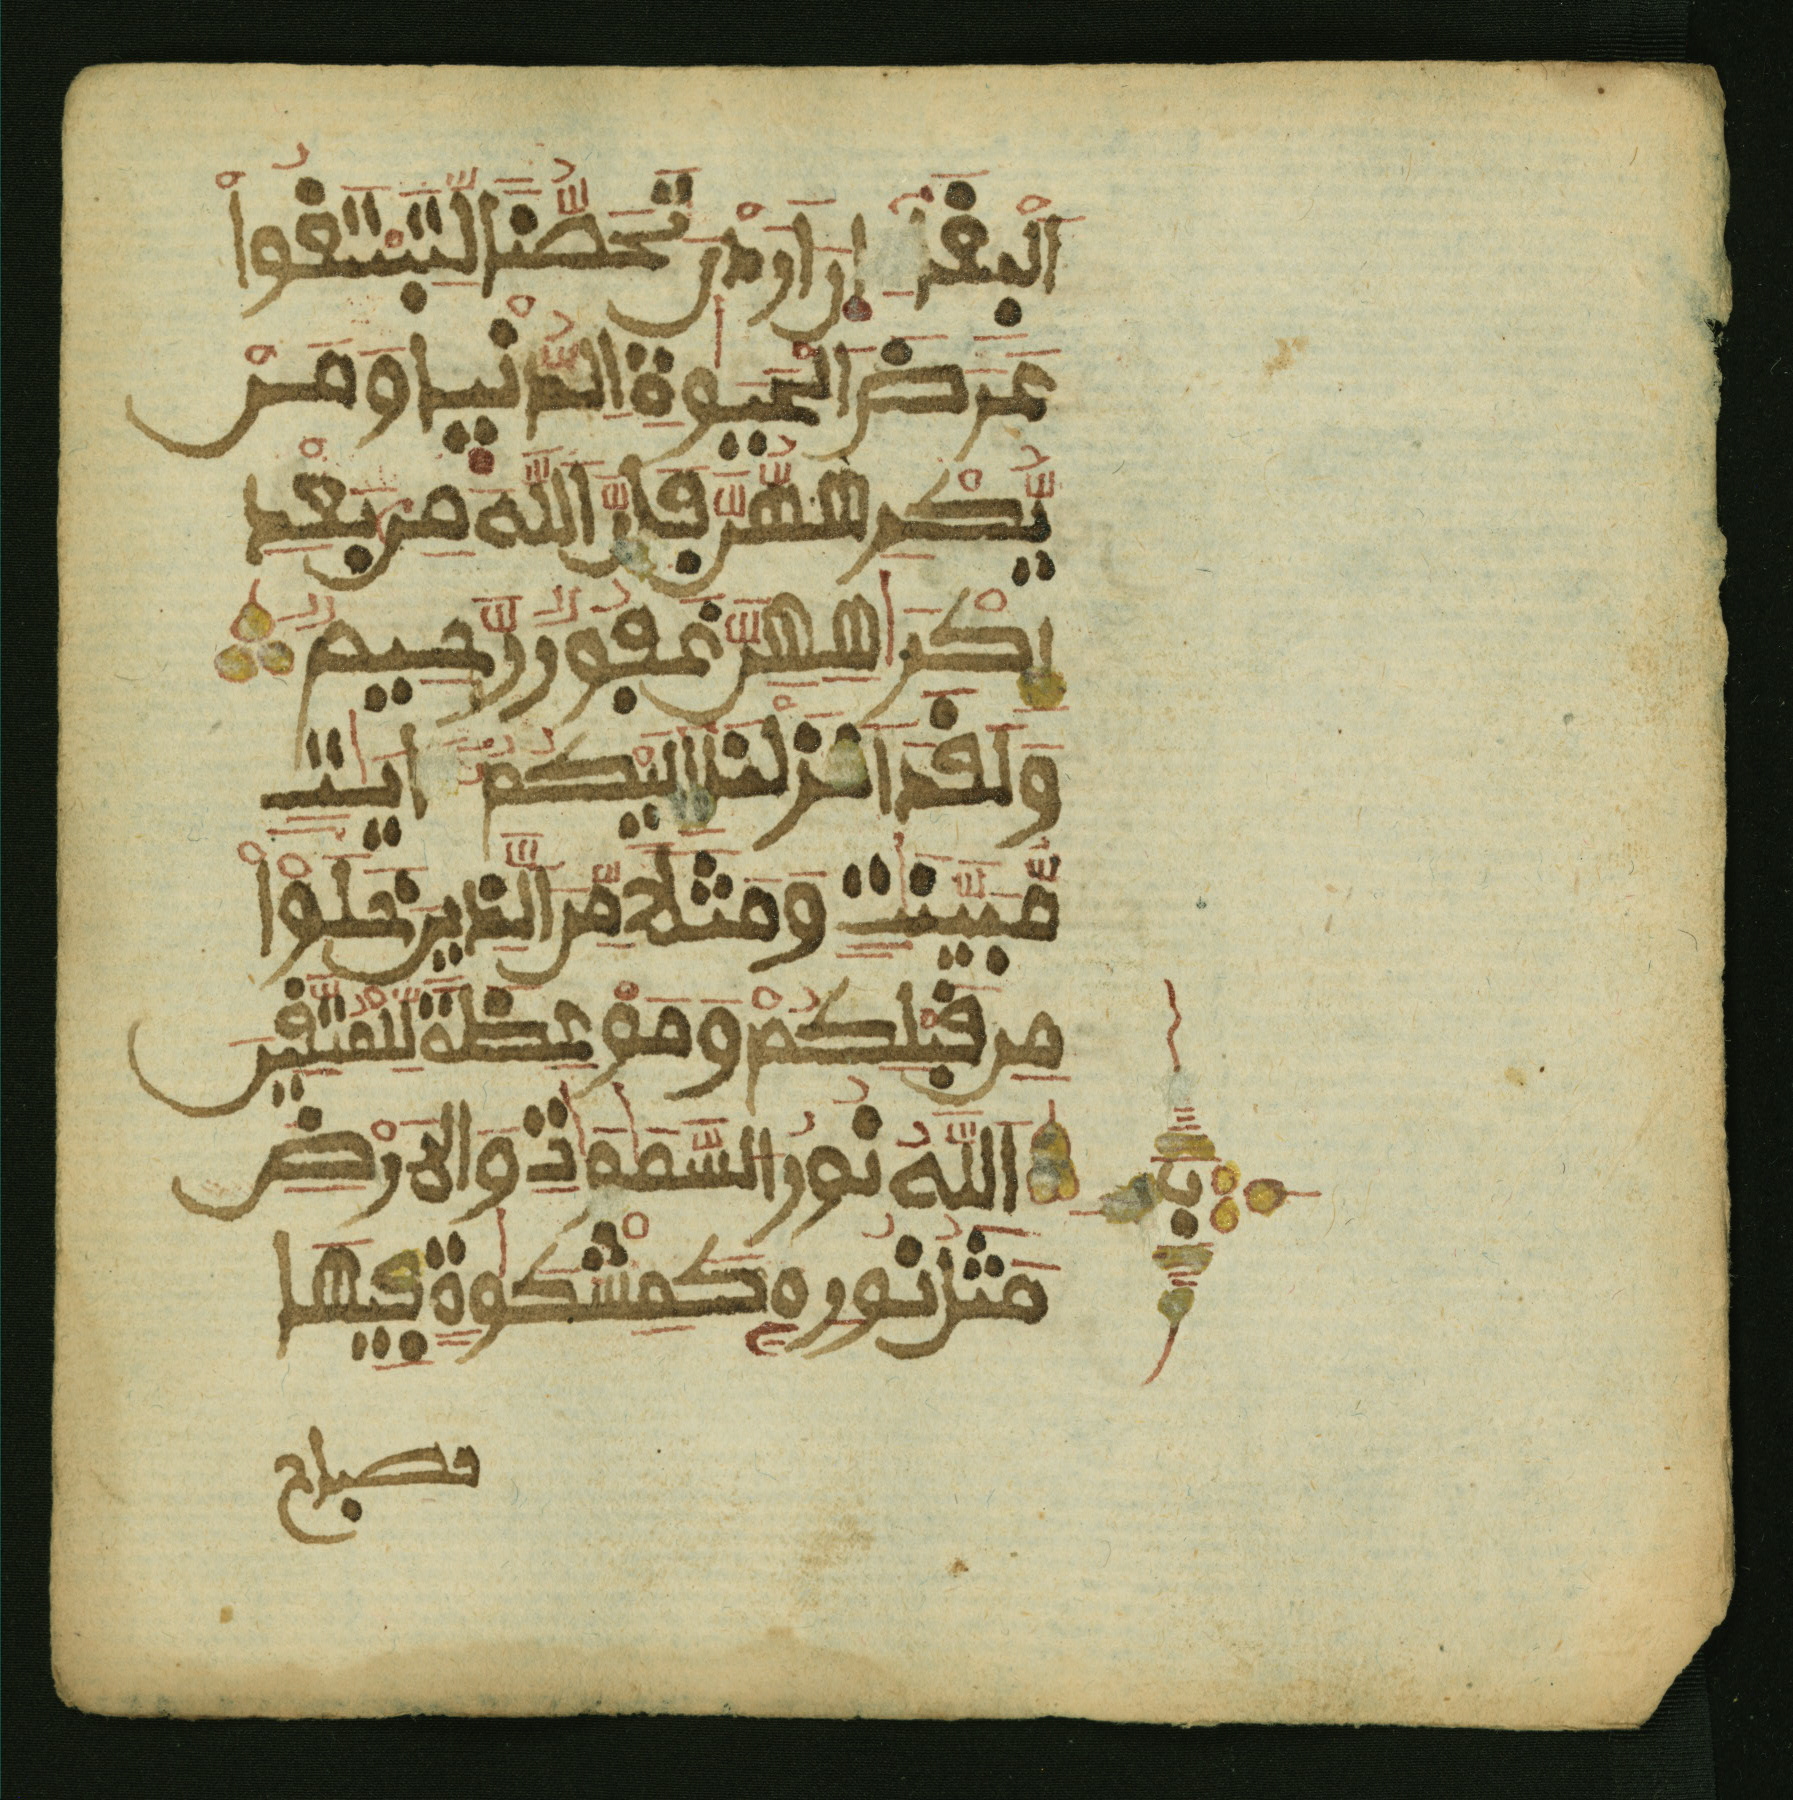 الْبِغَاءِ اِنَ اَرَدْنَ تَحَصُّنًا لِّتَبْتَغُواْ
عَرَضَ الْحَيَوٰةِ الدُّنْيَا وَمَنْ
يُّكْرِههُّنَّ فَإِنَّ اللَّهَ مِنۢ بَعْدِ
إِكْرَٰهِهِنَّ غَفُورٌ رَّحِيمٌ
وَلَقَدَ اَنزَلْنَا إِلَيْكُمُ ءَايَٰتٍ
مُّبَيَّنَٰتٍ وَمَثَلًا مِّنَ الَّذِينَ خَلَوْاْ
مِن قَبْلِكُمْ وَمَوْعِظَةً لِّلْمُتَّقِينَ
اللَّهُ نُورُ السَّمَٰوَٰتِ وَالَارْضِ
مَثَلُ نُورِهِ كَمِشْكَوٰةٍ فِيهَا
مصباح
ب